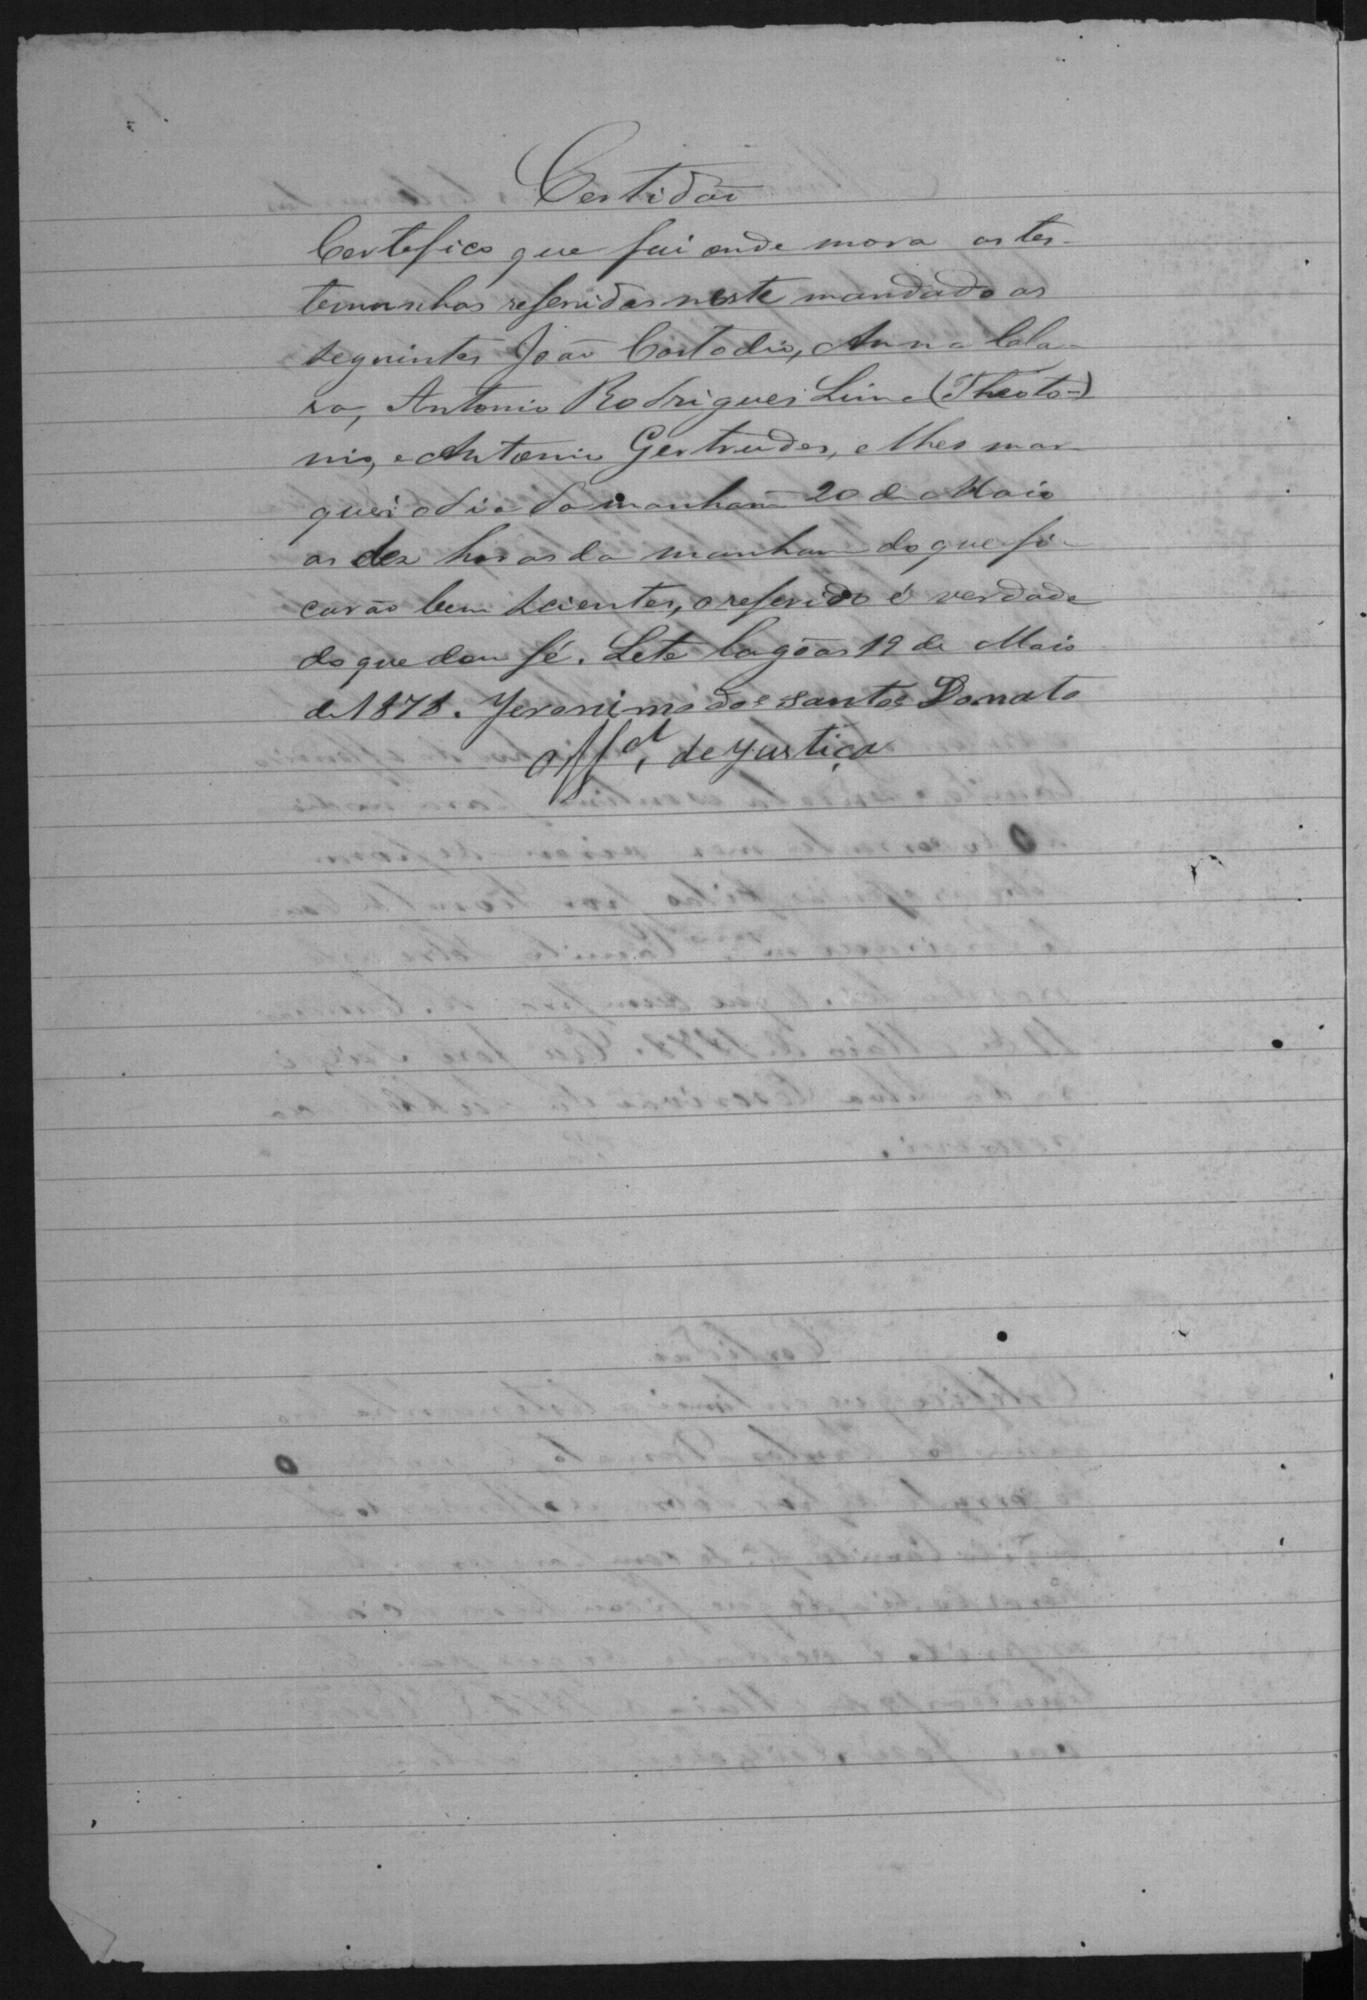 Certidão
Certefico que fui onde mora as tes-
temunhas referidas neste mandado as
seguintes João Costodio, Anna Cala-
ra, Antonio Rodrigues Lima (Theoto-)
nio, e Antonio Gertrudes, e lhes mar-
quei o dia da manham 20 de Maio
as dez horas da manham do que fi-
carão bem scientes, o referido é verdade
do que dou fé. Sete Lagôas 19 de Maio
de 1878. Jeronimo dos Santos Donato
Offal. de justiça